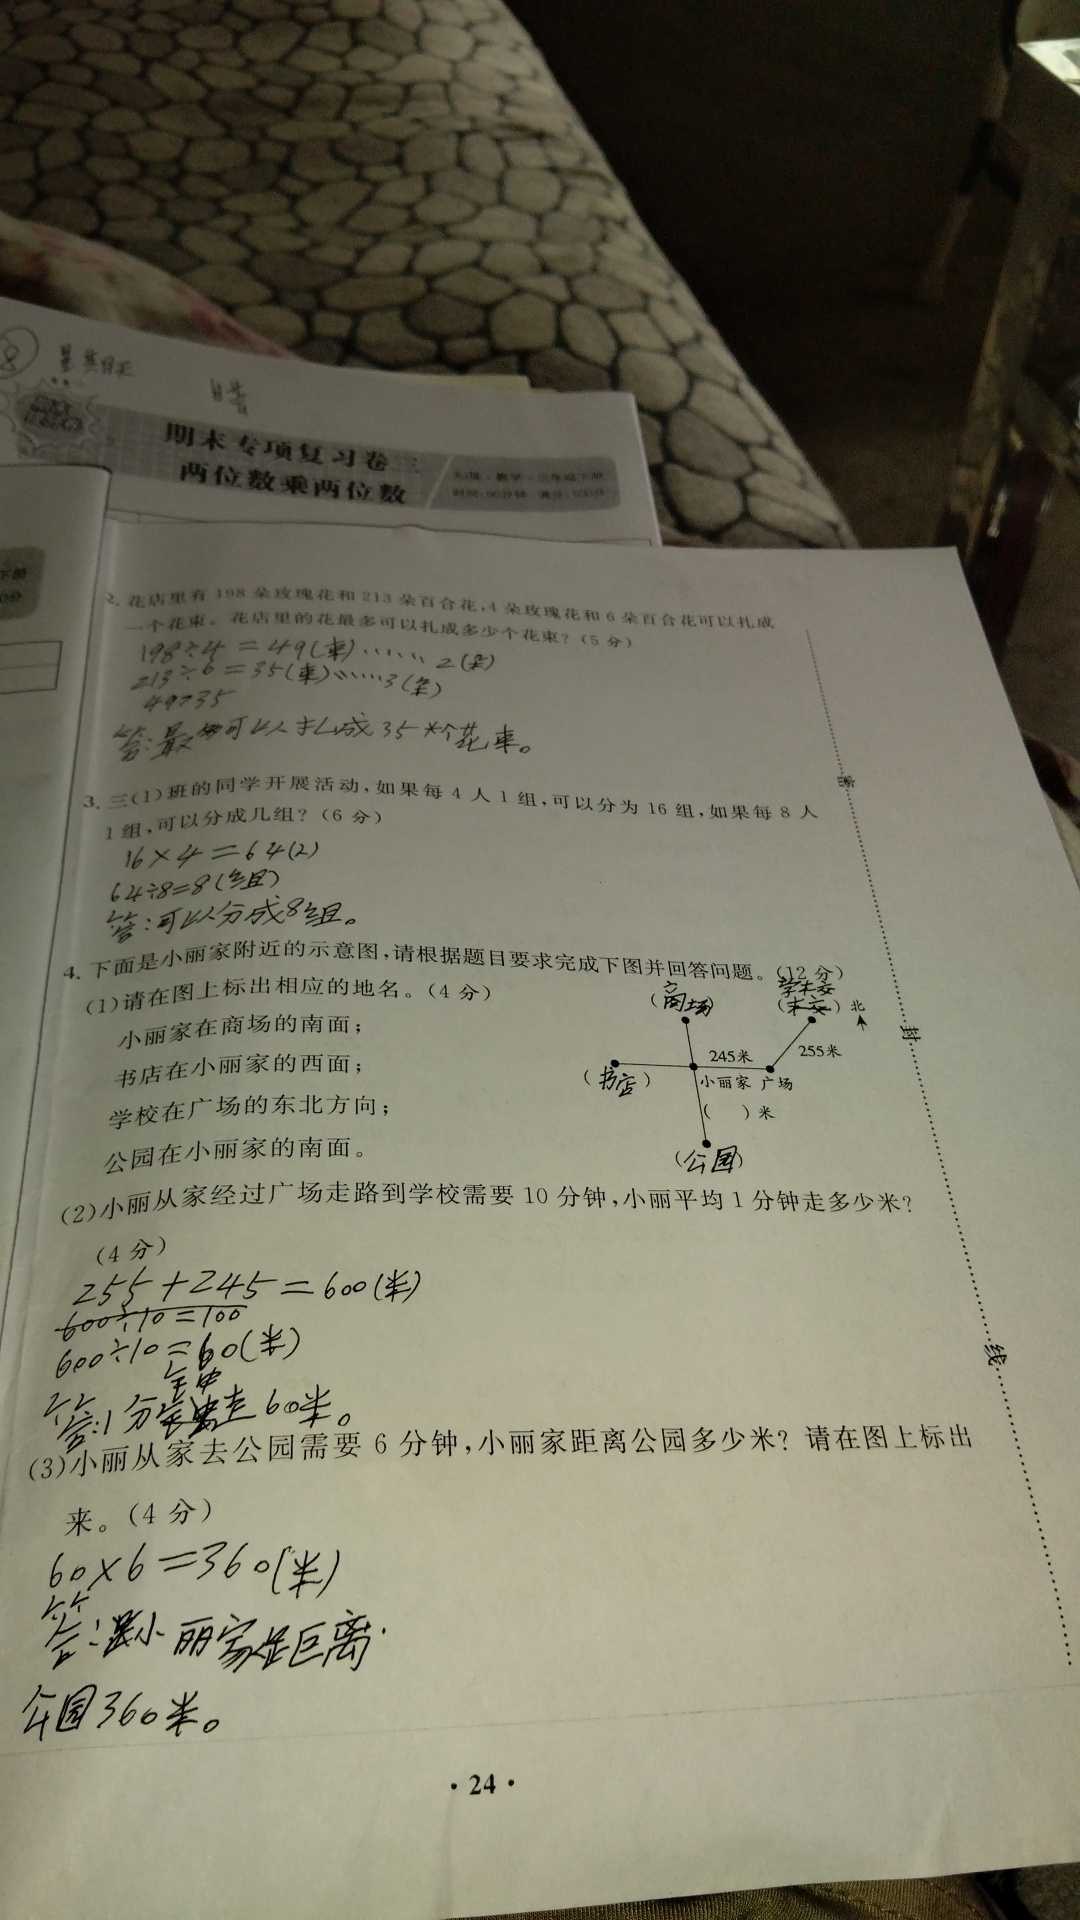 8
星期天
晴
期末专项复习卷三
两位数乘两位数
2. 花店里有 198 朵玫瑰花和 213 朵百合花,4 朵玫瑰花和 6 朵百合花可以扎成
一个花束。花店里的花最多可以扎成多少个花束?(5 分)
198÷4=49(束)……2(朵)
213÷6=35(束)……3(朵)
49>35
答:最多可以扎成35个花束。
3. 三(1)班的同学开展活动,如果每 4 人 1 组,可以分为 16 组,如果每 8 人
1 组,可以分成几组?(6 分)
16×4=64(人)
64÷8=8(组)
答:可以分成8组。
4. 下面是小丽家附近的示意图,请根据题目要求完成下图并回答问题。(12 分)
(1)请在图上标出相应的地名。(4 分)
小丽家在商场的南面;
书店在小丽家的西面;
学校在广场的东北方向;
公园在小丽家的南面。
(商场)
学校
北
245米
255米
(书店)
小丽家 广场
( )米
(公园)
(2)小丽从家经过广场走路到学校需要 10 分钟,小丽平均 1 分钟走多少米?
(4 分)
255+245=600(米)
600÷10=100
600÷10=60(米)
答:1分钟走60米。
(3)小丽从家去公园需要 6 分钟,小丽家距离公园多少米?请在图上标出
来。(4 分)
60×6=360(米)
答:小丽家是距离
公园360米。
密
封
线
·24·